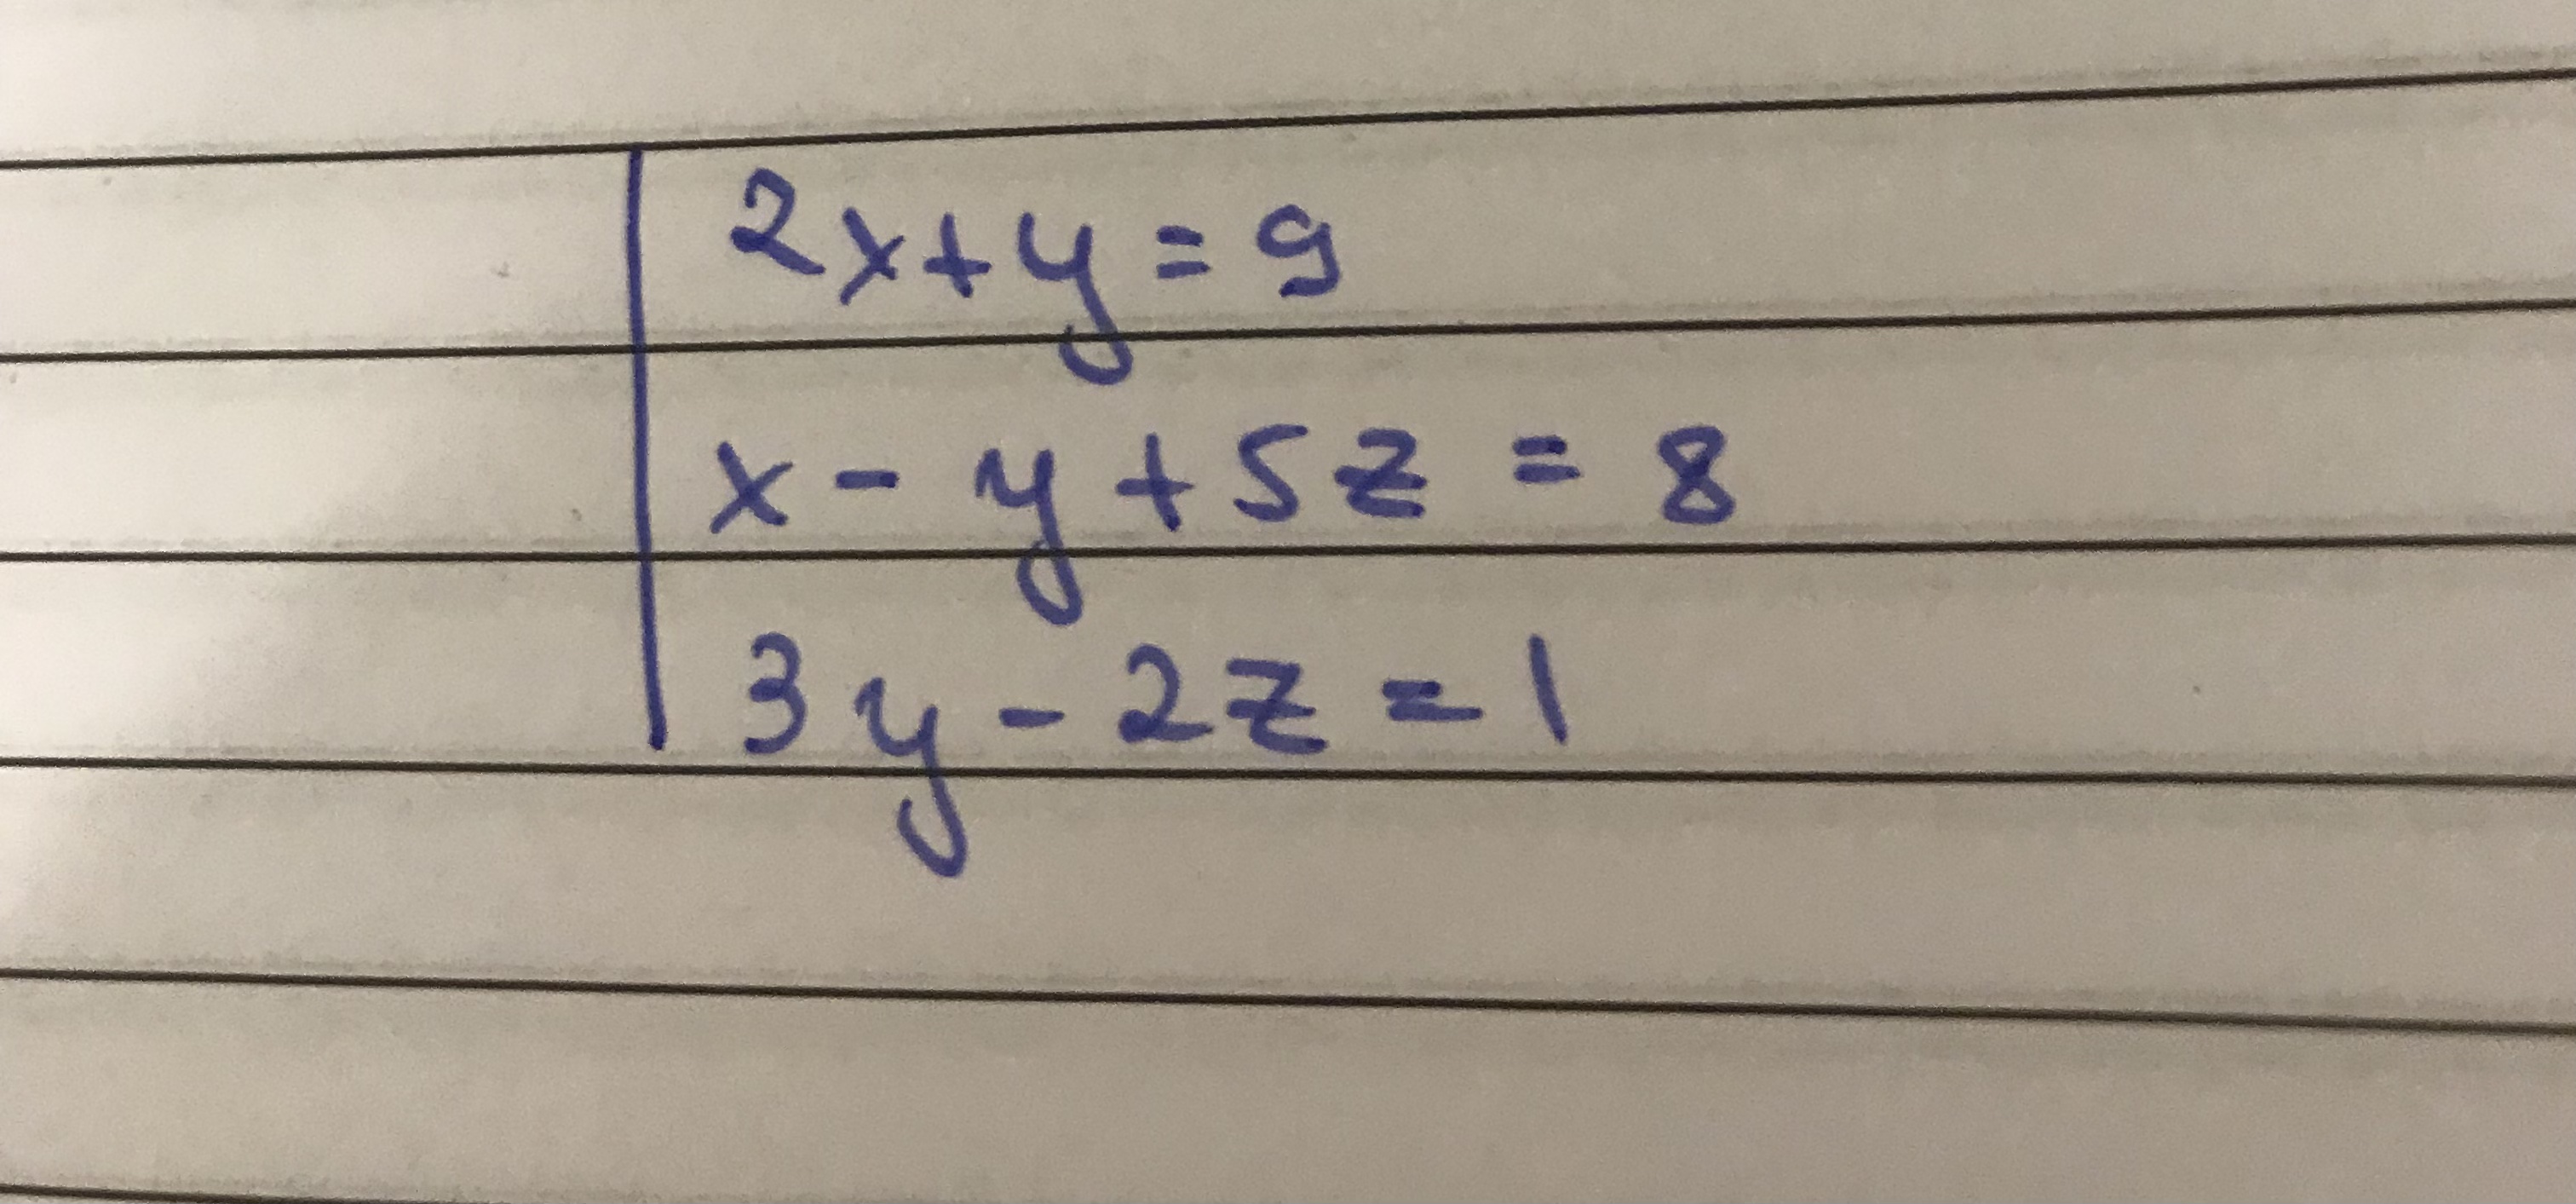 2x+y=9
x-y+5z=8
3y-2z=1